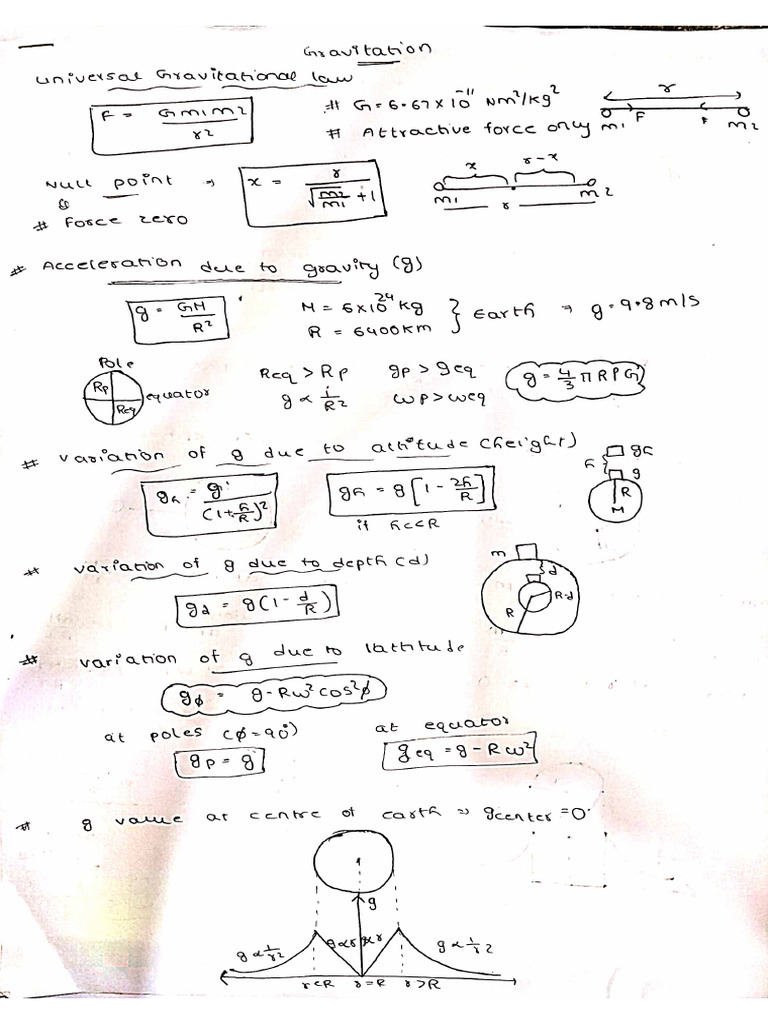 Gravitation
Universal Gravitational law
F = Gm1m2/r2
# G = 6.67×10^-11 Nm^2/Kg^2
# Attractive force only
r
m1 F F m2
Null point ⇒ x = r/(√(m2/m1) + 1)
# Force zero
x r-x
m1 r m2
# Acceleration due to gravity (g)
g = GM/R^2
M = 6×10^24 Kg
R = 6400KM
} Earth ⇒ g = 9.8m/s
Pole
Rp
Req
equator
Req > Rp gp > geq
g ∝ 1/R2 wp > weq
g = 4/3 π R P G
# variation of g due to altitude (height)
gh = g/(1+h/R)^2
gh = g[1 - 2h/R]
if h<<R
h gh
g
R
M
# variation of g due to depth (d)
gd = g(1-d/R)
m
d
R-d
R
# variation of g due to lattitude
gϕ = g - Rω^2cos^2ϕ
at poles (ϕ=90°) at equator
gp = g geq = g - Rω^2
# g value at centre of earth ⇒ gcenter = 0
g
g ∝ 1/r2 g∝r ∝r g ∝ 1/r2
r<R r=R r>R